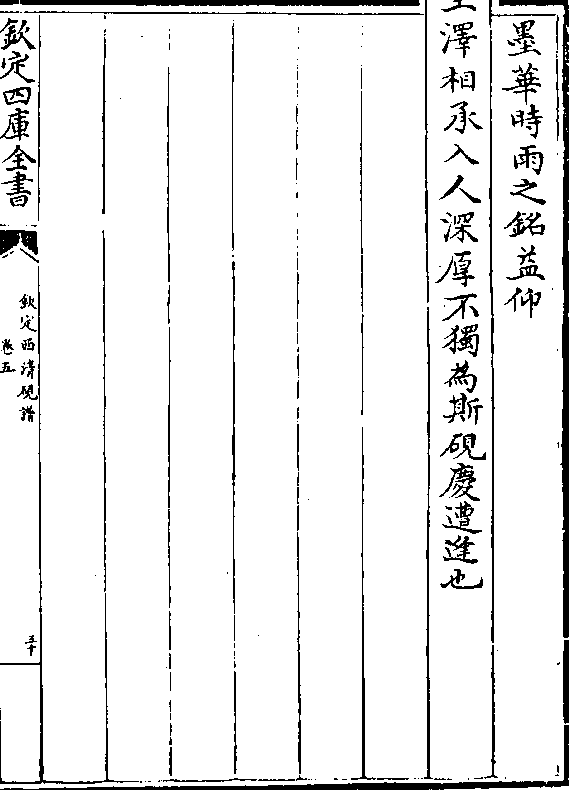 墨華時雨之銘益仰
澤相承入人深厚不獨為斯硯慶遭逢也
欽定四庫全書
欽定西清硯譜
卷五
五十